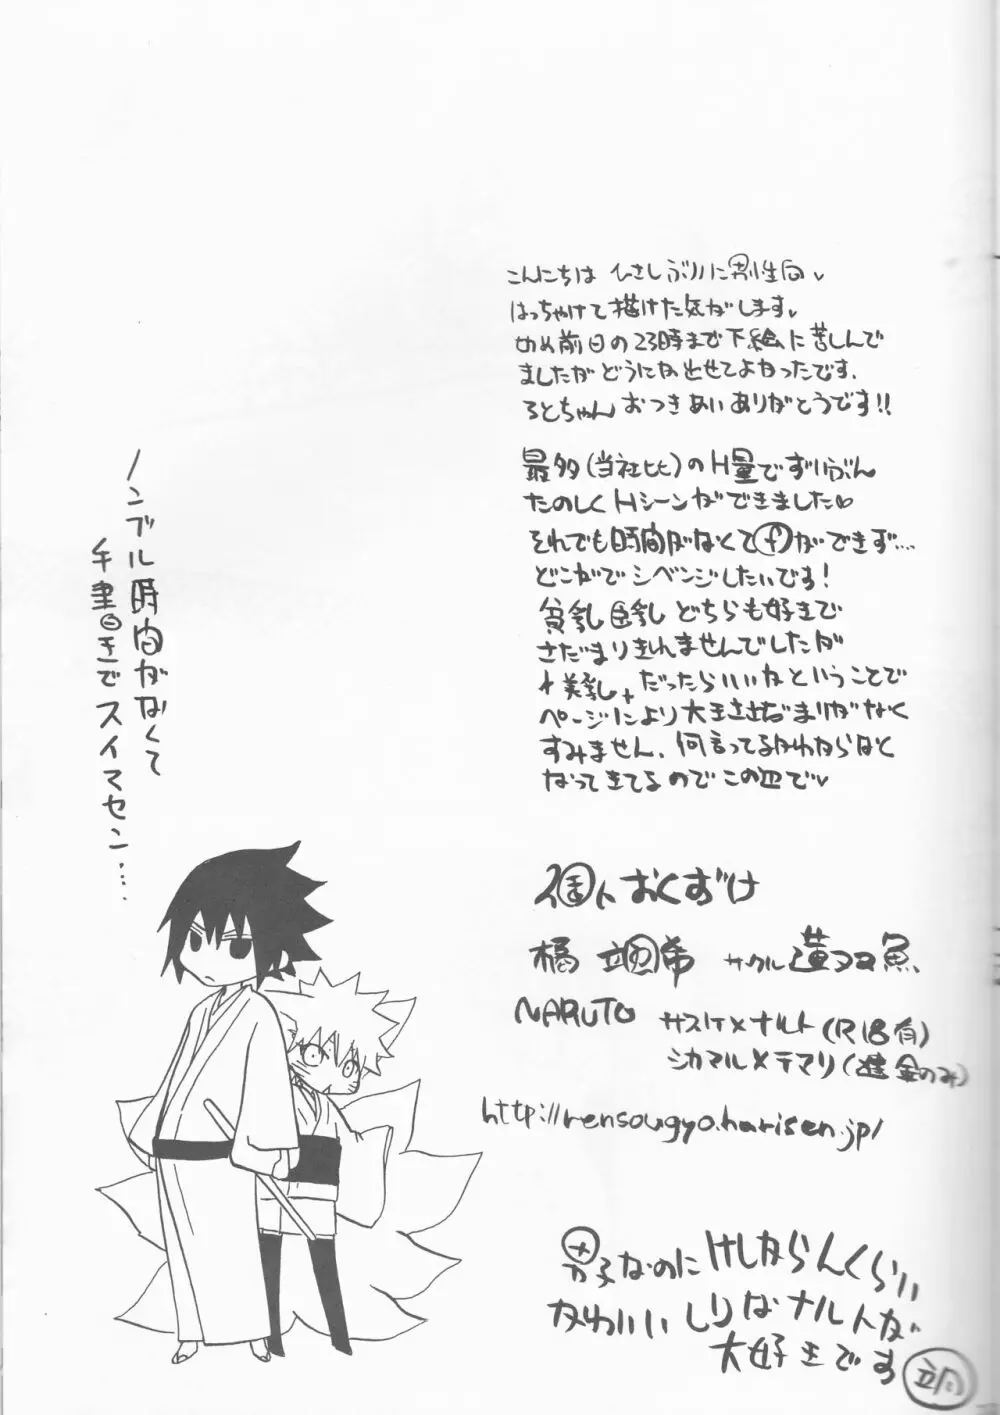 こんにちは ひさしぶりに男性向
はっちゃけて描けた気がします
〆め前日の23時まで下絵に苦しんで
ましたがどうにか出せてよかったです.
るとちゃん おつきあいありがとうです!!
最多(当社比)のH量でずいぶん
たのしくHシーンができました♡
それでも時間がなくて ができず…
どこかでリベンジしたいです!
貧乳 巨乳 どちらも好きで
さだまりきれませんでしたが
美乳 だったらいいねということで
ページにより大きささだまりがなく
すみません. 何言ってるかわからなく
なってきてるのでこの辺で♡
ノンブル時間がなくて
手書きでスイマセン…
個人おくずけ
橘 希 サークル 蓮双魚
NARUTO サスケ×ナルト(R18有)
シカマル×テマリ(健全のみ)
http://rensougyo.harisen.jp/
男子なのに けしからんくらい
かわいい しりなナルトが
大好きです